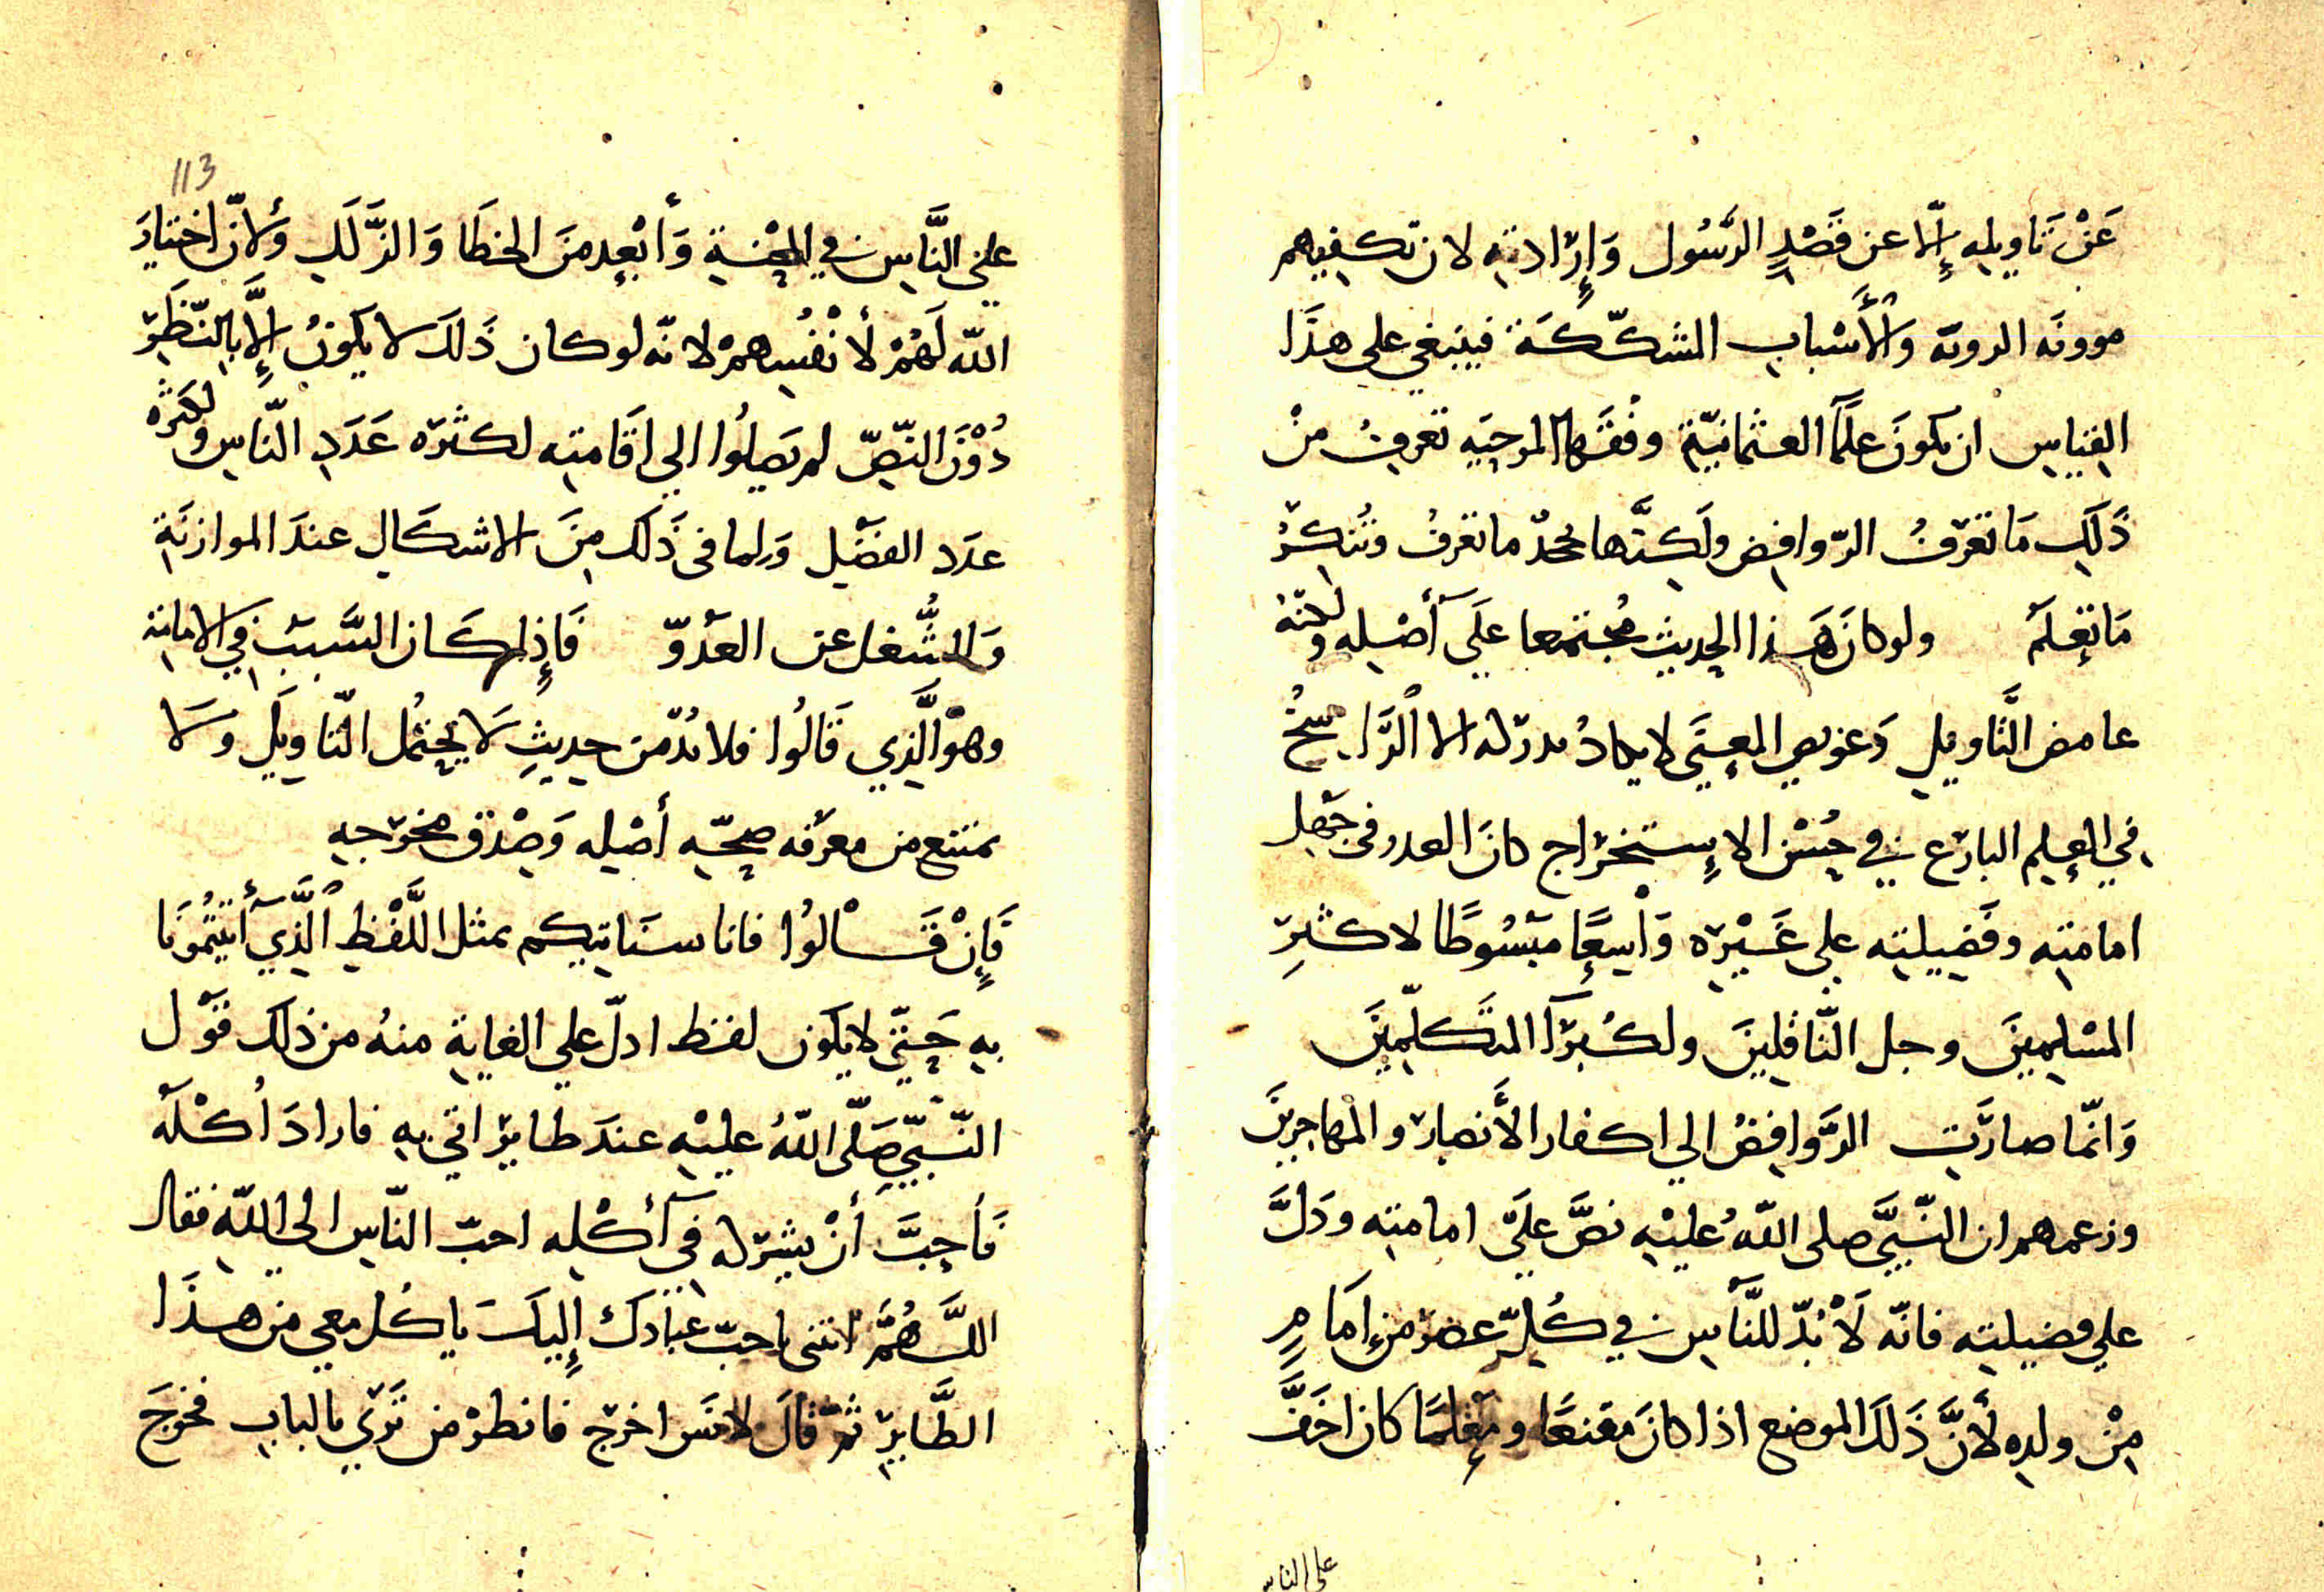 عَنْ تَاويله إلّا عن قَصْدِ الرَّسُول وَإِرَادتِه لان تكفيهم
موونَه الرويّه والأَسْبابِ المشكّكَة فينبغي على هذَا
القِياسِ ان يكونَ علَمآ العثمانيّة وفُقَهآ المرجيَه تعرفُ منْ
ذَلِك مَا تَعْرَفُ الرّوافِض ولَكِنَّها تجحدُ ما تعرفُ وتُنكِرُ
مَا تَعلَمُ ولو كانَ هَذا الحِديث مُجتمعا علَى أَصْله ولكنّه
غامض التَّاويلِ وَعويص المعِنَى لا يكادُ يدركه الا الرَّاسخُ
في العِلم البارَع في حُسْنِ الاِستخرَاج كانَ العذر في جَهْل
امامتِه وفَضِيلتِه على غَيْرِه وَاسِعًا مَبْسُوطًا لاكثَرِ
المسْلِمِينَ وجل النّاقِلِينَ ولكُبَرآ المتَكلّمِينَ
وَانّما صارَتِ الرَّوافِضُ الي اكفار الأَنصار والمْهاجرِينَ
وزعمهم ان النّبيَّ صلى اللهُ عليْهِ نصَّ علَى امامتِه ودَلَّ
على فضيلتِه فانّه لَا بُدّ للنَّاسِ في كُلِّ عصْرٍ من إمَامٍ
مِنْ ولدِه لأنَّ ذَلكَ الموضع اذا كانَ مقنعًا ومَعْلمًا كان اخَفَّ
على الناس
113
علي النَّاسِ في المِحْنةِ وَأبْعِد منَ الخطَا وَالزَّلَلِ وَلأنّ اختيارَ
اللّه لَهُمْ لأنْفُسِهمْ لانّه لو كان ذَلكَ لا يكونُ إِلَّا بِالنّظَرِ
دُوْنَ النّصِّ لم يَصِلُوا الي اقَامتِه لكثرَه عَدَدِ النّاسِ ولكثَره
عدَد الفضْلِ وَلما فى ذَلكَ مِنَ الاشكَالِ عندَ الموازنَةِ
وَالشُّغل عن العدْوّ فَإِذا كَان السَّببُ في الامامَةِ
وهوَ الَّذِي قَالُوا فلا بُدّ من حدِيثٍ لَا يحِتمُل التّاويلَ ولَا
يمتنع من معرَفه صِحّهِ أصْلِه وَصِدْق مخرَجهِ
فَإِنْ قَالوُا فانا سنَاتيكم بمثل اللَّفْظِ الَّذِي أَتيتُمُونَا
بهِ حَتّى لا يكون لفظ ادلّ علي الغايةِ منهُ من ذلكَ قوْل
النّبيّ صَلّى اللّهُ عليْهِ عندَ طايرٍ اتي بِهِ فارادَ أكْلَهُ
فَأحبَّ أنْ يشرَكه في أكْلِه احبّ النّاسِ الي اللّهِ فقال
اللَّهُمَّ ائتني باحبّ عبادَك إِليكَ ياكُل معي من هذَا
الطَّايرِ ثمّ قالَ لانَس اخرَج فانظرْ من تَرَي بالبابِ فخرجَ